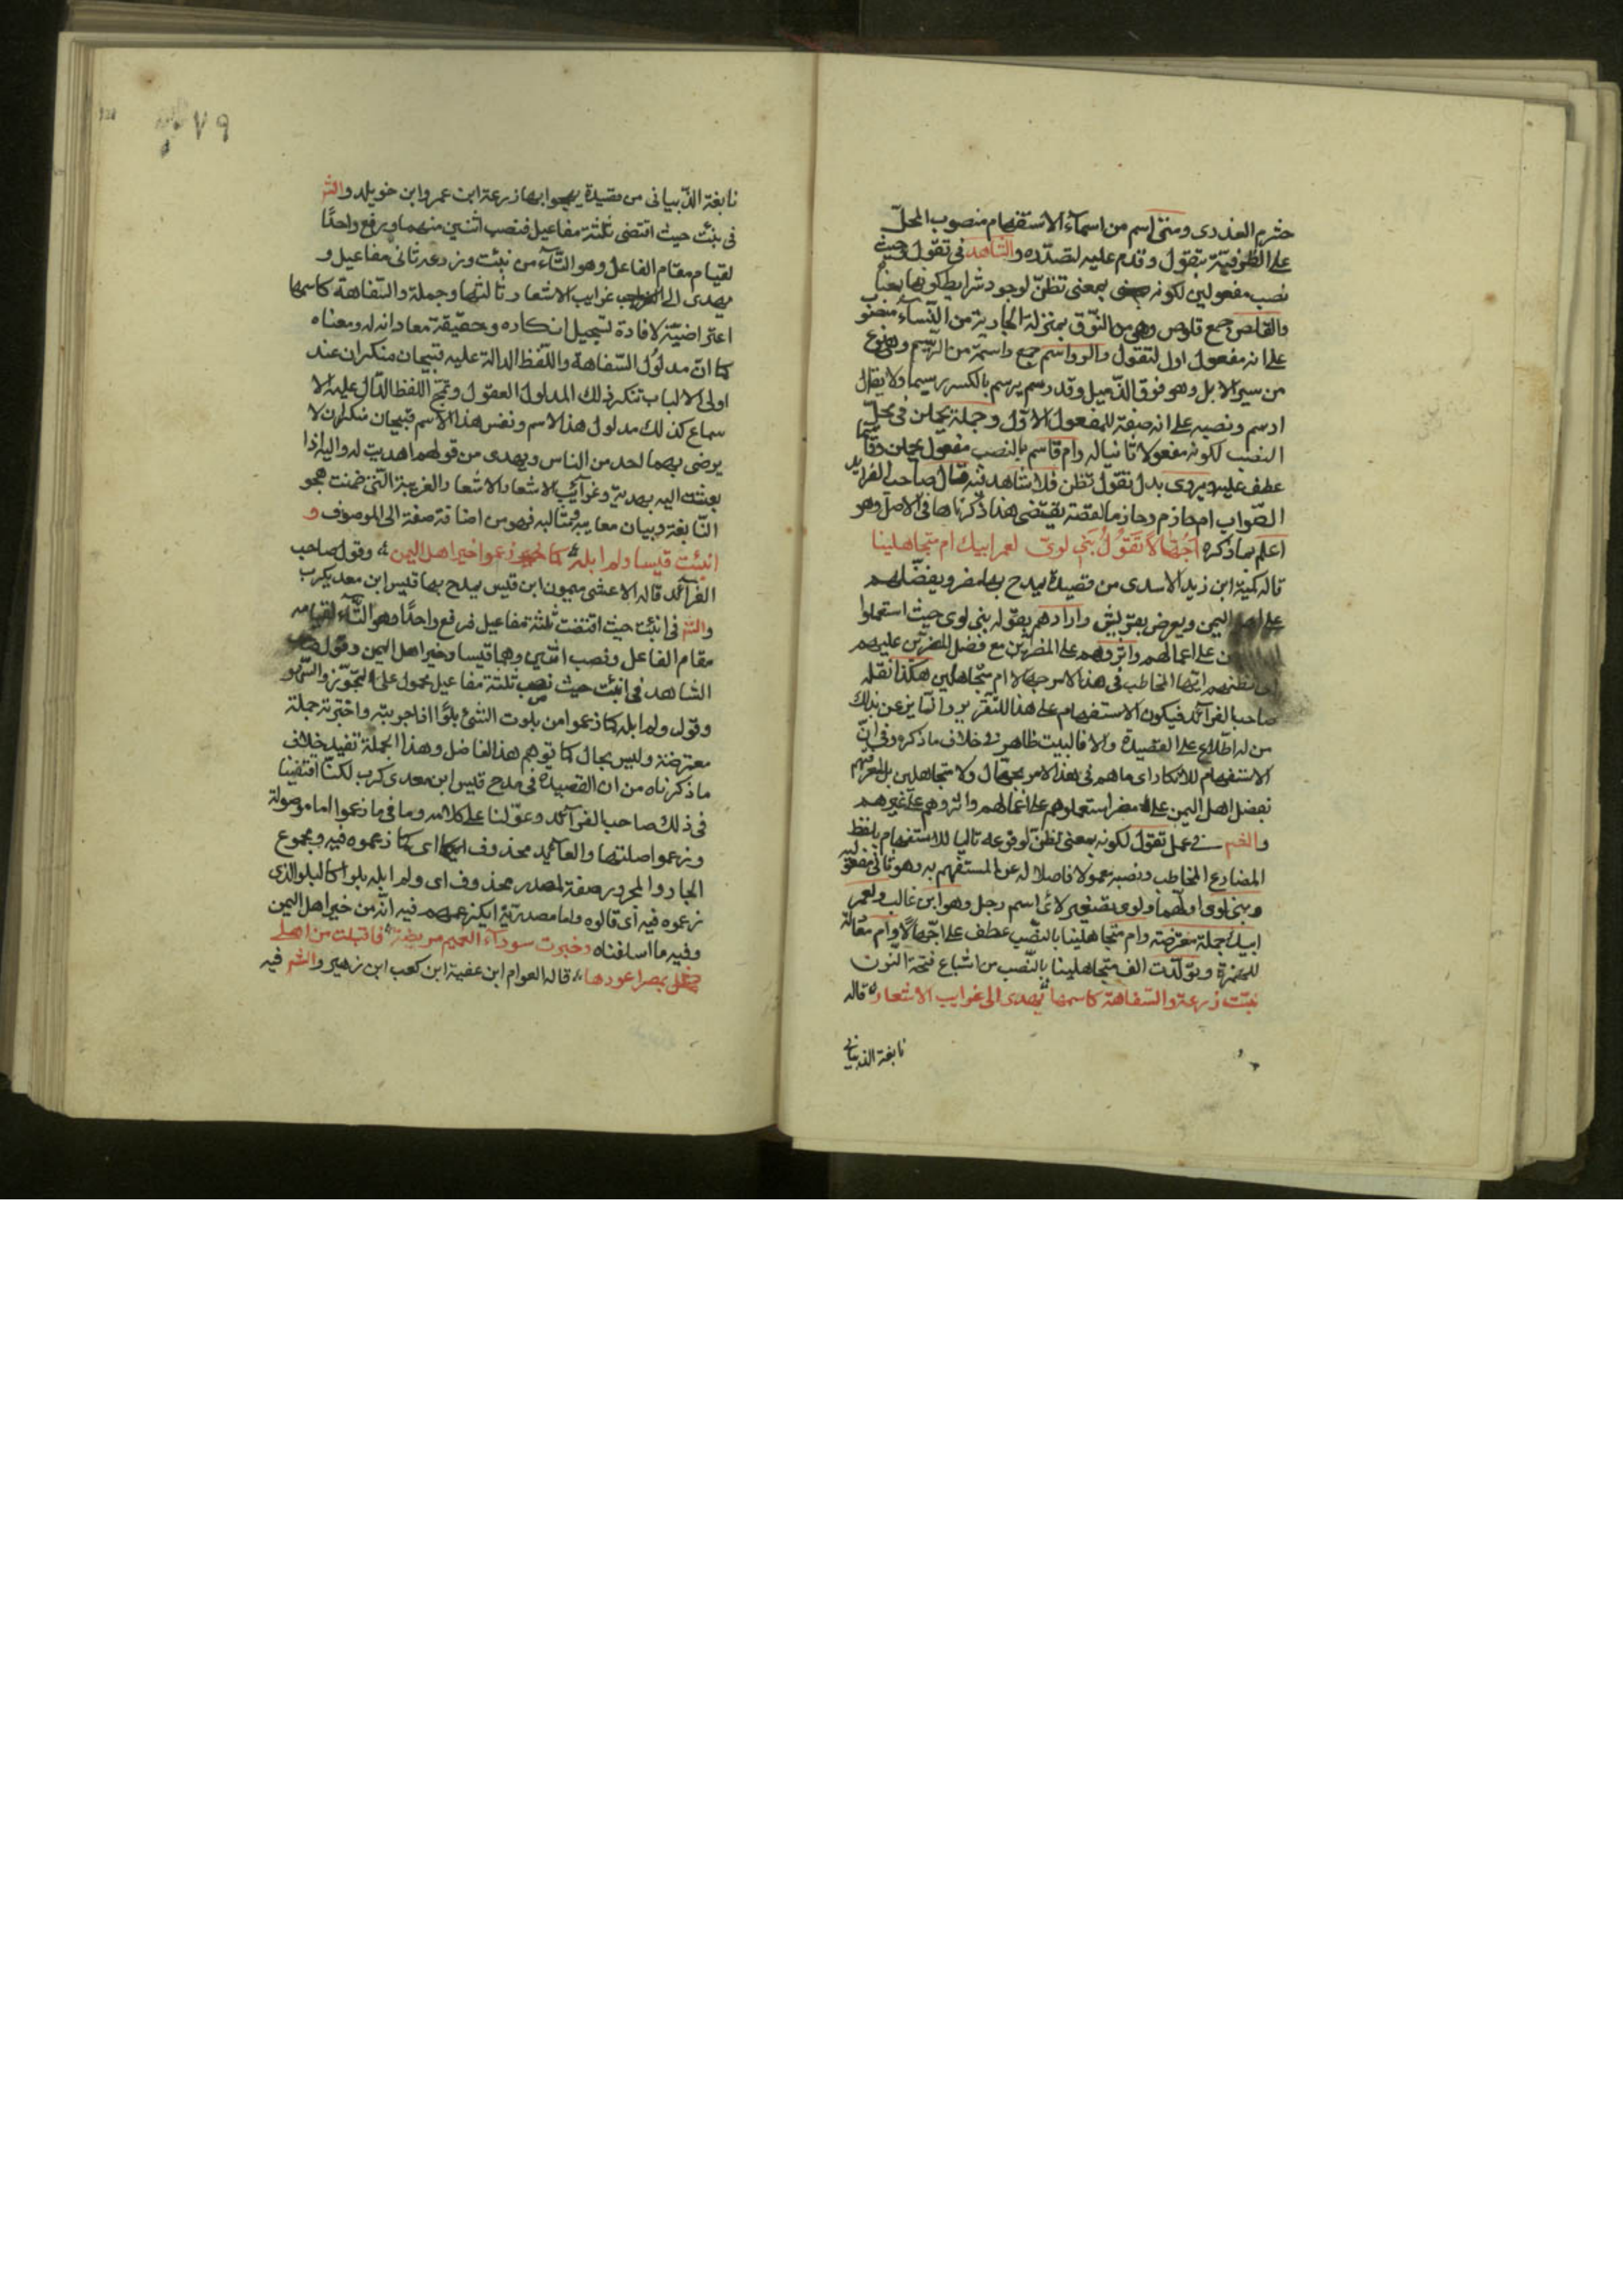 خثرم العذرى ومتى اسم من اسمآء الاستفهام منصوب المحلّ
على الظرفيّة بتقول وقدم عليه لتصدّره والشاهد فى تقول حيث
نصب مفعولين لكونه بمعنى تظنّ لوجود شرايط كونها بمعناه
والقلص جمع قلوص وهى من النّوق بمنزلة الجارية من النّسآء منصوب
على انه مفعول اول لتقول والرواسم جمع راسمة من الرّسيم وهو نوع
من سير الابل وهو فوق الذّميل وقد رسم يرسم بالكسر رسيما ولا يقال
ارسم ونصبه على انه صفة للمفعول الاوّل وجملة يحملن فى محلّ
النصب لكونه مفعولا ثانيا له وام قاسم بالنصب مفعول يحملن وقاسما
عطف عليه ويروى بدل تقول تظن فلا شاهد فيه قال صاحب الفرايد
الصّواب ام حازم وحازما لقصة يقتضى هذا ذكرناها فى الاصل وهو
اعلم بما ذكره اجهّالا تقول بنى لوىّ لعمر ابيك ام متجاهلينا
قاله كمية ابن زيد الاسدى من قصيدة يمدح بها مضر ويفضّلهم
على اهل اليمن ويعرض بقريش وارادهم بقوله بنى لوى حيث استعملوا
على اعمالهم واثروهم على المضريّين مع فضل المضريّين عليهم
اتظنهم ايّها المخاطب فى هذا الامر جهّالا ام متجاهلين هكذا نقله
صاحب الفرآئد فيكون الاستفهام على هذا للتقرير وانبأ بزعن بذلك
من له اطّلاع على القصيدة والا فالبيت ظاهر فى خلاف ما ذكره وفى انّ
الاستفهام للانكار اى ما هم فى هذا الامر بجهّال ولا متجاهلين بل لمعرفتهم
بفضل اهل اليمن على مضر استعملوهم على اعمالهم واثروهم على غيرهم
والشم فى عمل تقول لكونه بمعنى تظنّ لوقوعه تاليا للاستفهام بلفظ
المضارع المخاطب ونصبه معمولا فاصلا له عن المستفهم به وهو ثانى مفعوليه
وبنى لوى اولهما ولوى تصغير لائ اسم رجل وهو ابن غالب ولعمر
ابيك جملة معترضة وام متجاهلينا بالنّصب عطف على اجّهالا وام معادلة
للهمزة وتولّدت الف متجاهلينا بالنّصب من اشباع فتحة النّون
نبّئت زرعة والسّفاهة كاسمها يهدى الى غرايب الاشعار قاله
نابغة الذبيانى
٧٩
نابغة الذّبيانى من قصيدة يهجوا بها زرعة ابن عمرو ابن خويلد والشم
فى نبئت حيث اقتضى ثلثة مفاعيل فنصب اثنين منهما ويرفع واحدًا
لقيام مقام الفاعل وهو التّآء من نبّئت وزرعة ثانى مفاعيل و
يهدى الى غرايب الاشعار ثالثها وجملة والسّفاهة كاسمها
اعتراضيّة لافادة تسجيل انكاره وحقيقة معادانه له ومعناه
كما انّ مدلول السّفاهة واللّفظ الدالة عليه قبيحان منكران عند
اولى الالباب تنكر ذلك المدلول العقول وتمجّ اللفظ الدّال عليه الا
سماع كذلك مدلول هذا الاسم ونفس هذا الاسم قبيحان منكران لا
يرضى بهما لحد من الناس ويهدى من قولهم اهديت له واليه اذا
بعثت اليه بهديّة وغرآئب الاشعار الاشعار الغريبة التى ضمنت هجو
النّابغة وبيان معايبه ومثالبه فهو من اضافة صفة الى الموصوف و
انبئت قيسا ولم ابله كما زعموا خير اهل اليمن وقول صاحب
الفرآئد قاله الاعشى ميمون ابن قيس يمدح بها قيس ابن معديكرب
والشم فى انبئت حيث اقتضت ثلثة مفاعيل فرفع واحدًا وهو التّآء لقيامه
مقام الفاعل ونصب اثنين وهما قيسا وخير اهل اليمن وقول
الشاهد فى انبئت حيث نصب ثلثة مفاعيل محمول على التجوّز والسّهو
وقوله ولم ابله كما زعموا من بلوت الشئ بلوًا اذا جربته واختبرته جملة
معترضة وليس بحال كما توهم هذا الفاضل وهذا الجملة تفيد خلاف
ما ذكرناه من ان القصيدة فى مدح قيس ابن معدى كرب لكنّا اقتفينا
فى ذلك صاحب الفرآئد وعوّلنا على كلامه وما فى ما زعموا اما موصولة
وزعموا صلتها والعآئد محذوف اى كما زعموه فيه ومجموع
الجار والمجرور صفة لمصدر محذوف اى ولم ابله بلوا كالبلو الذى
زعموه فيه اى قالوه واما مصدريّة اى كزعمهم فيه انّه من خير اهل اليمن
وفيه ما اسلفناه وخبرت سودآء الغميم مريضة فاقبلت من اهلى
بمصر اعودها قاله العوام ابن عقبة ابن كعب ابن زهير والشم فيه